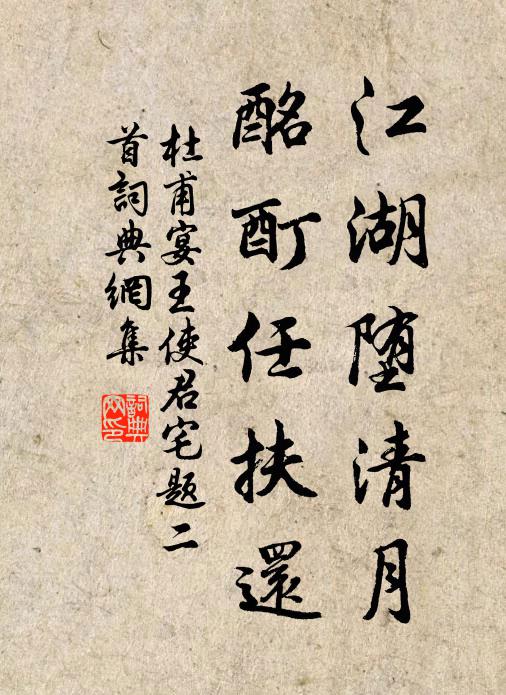 江湖堕清月
酩酊任扶還
杜甫宴王使君宅題二
首詞典網集
詞典網印